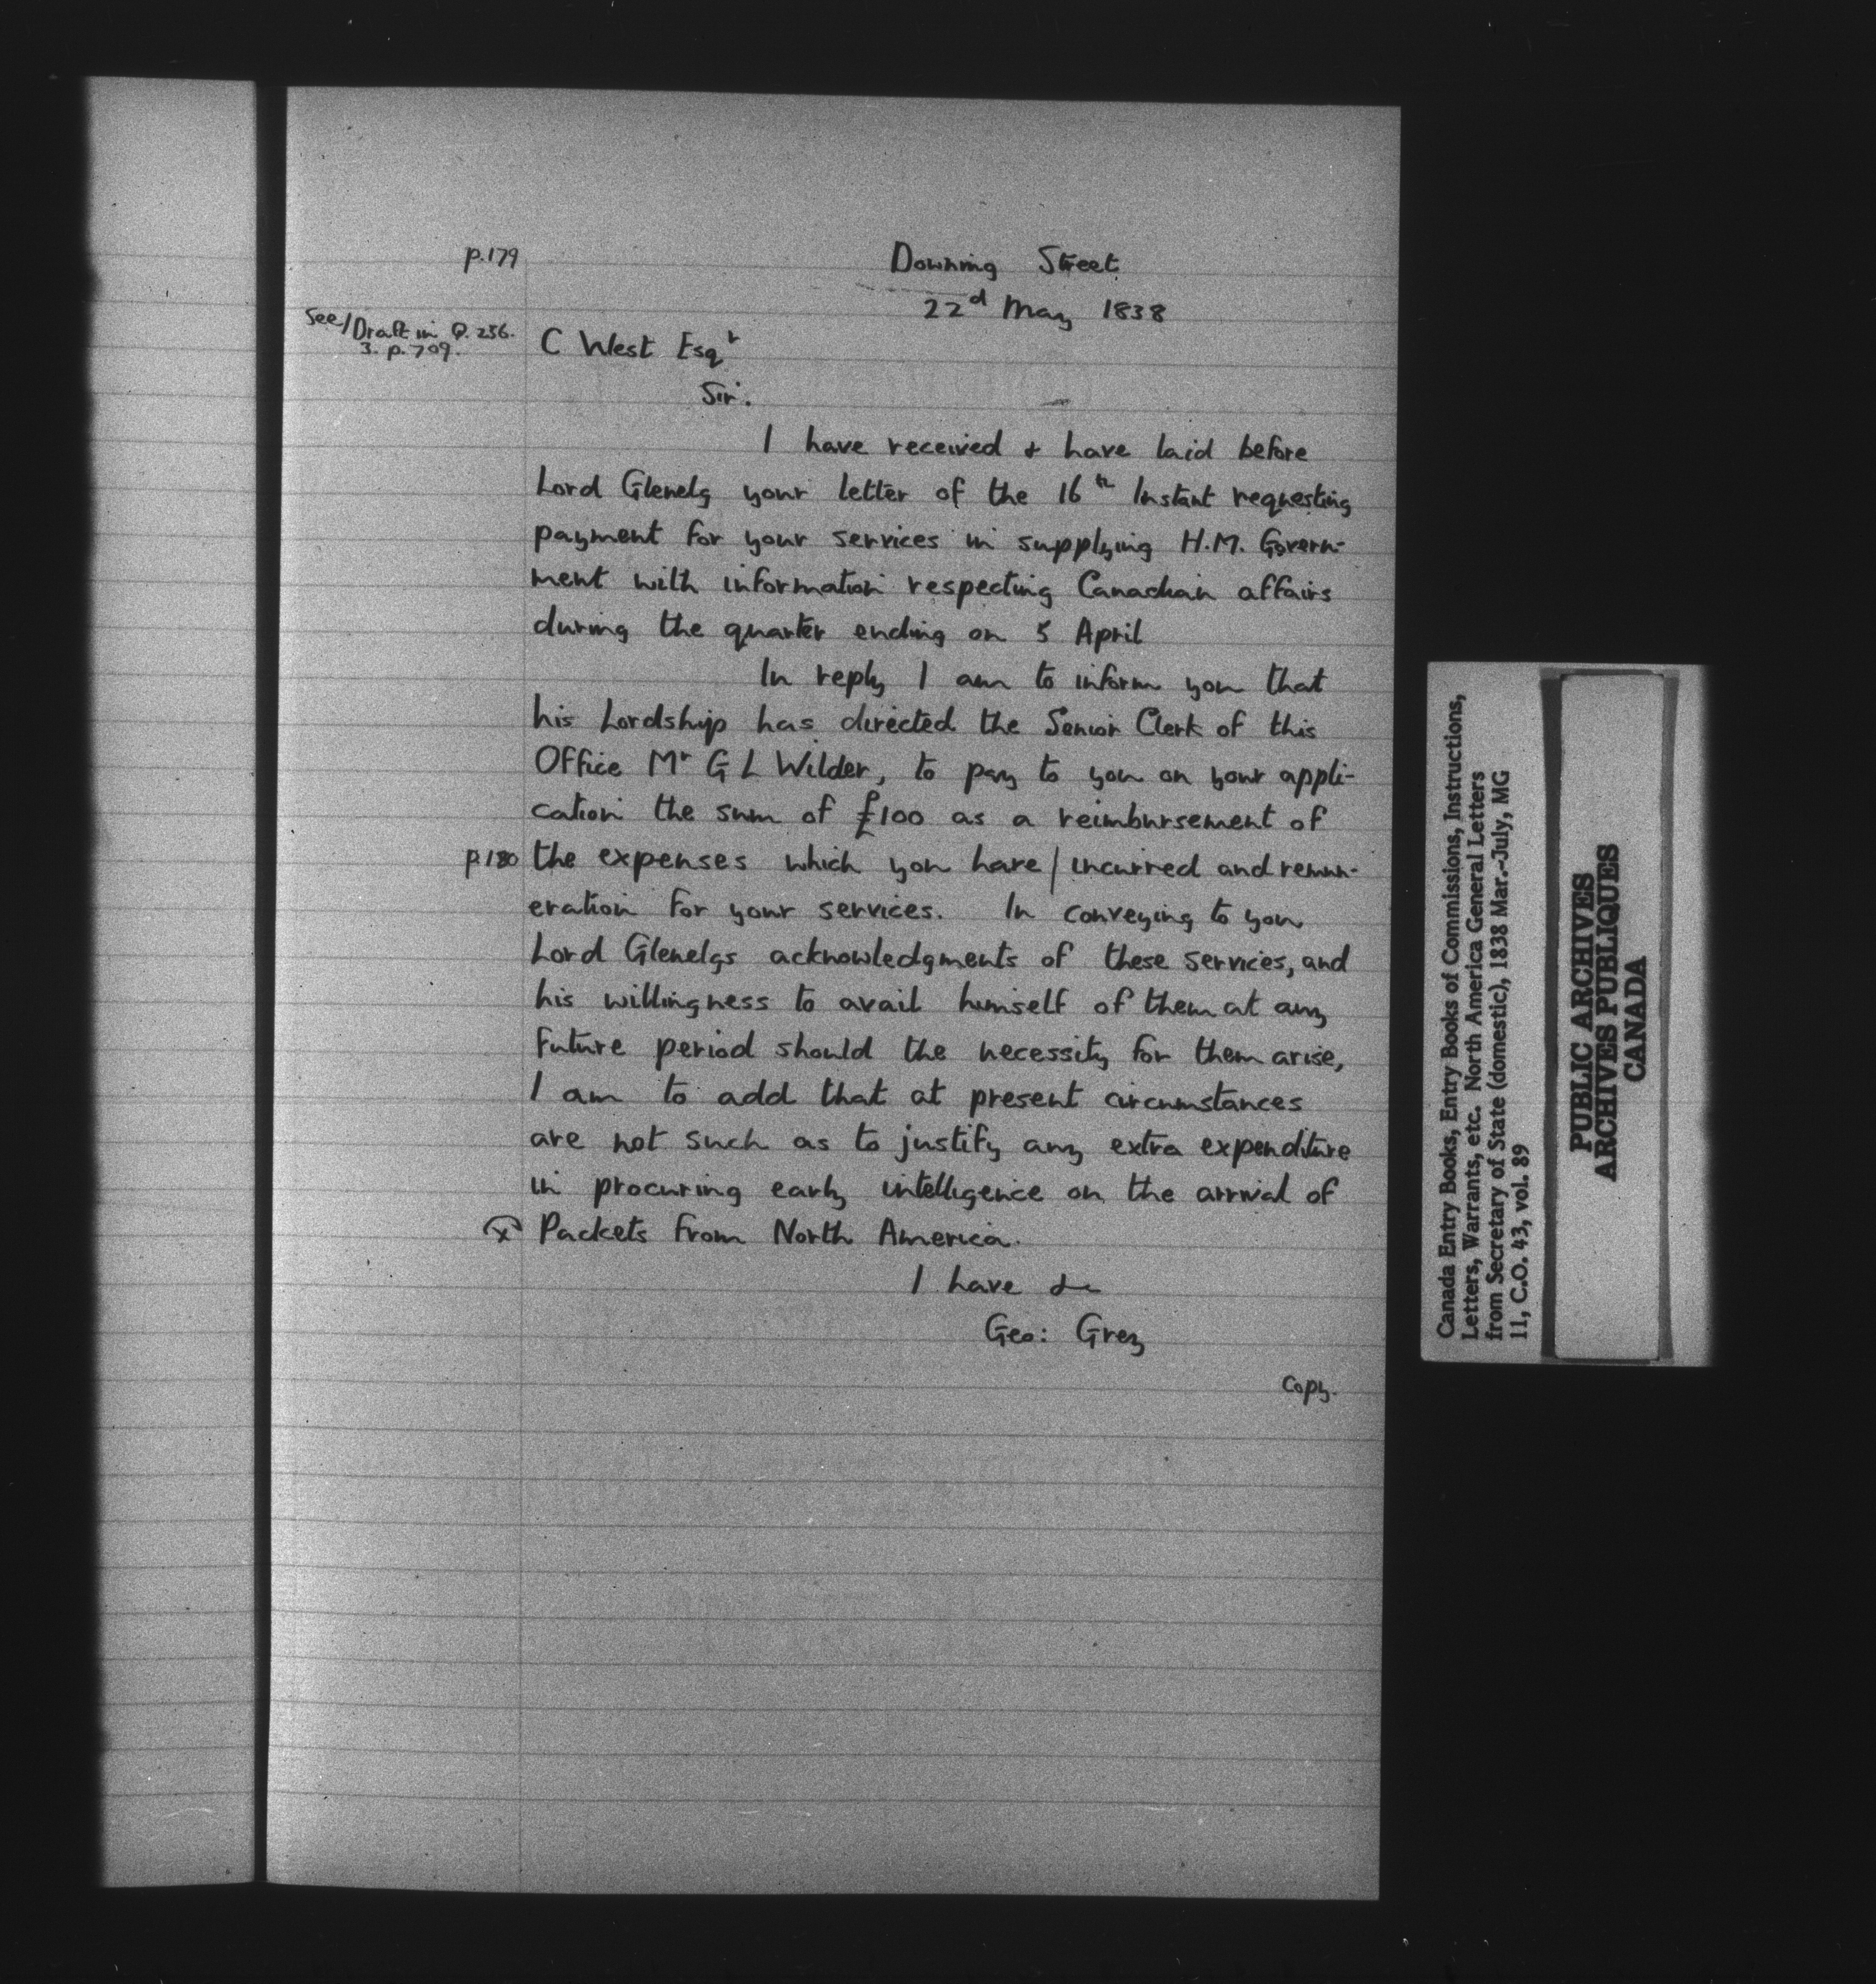 p.179
Downing Street
22d May 1838
See/Draft in Q. 256.
3. p. 709.
C West Esqr
Sir.
I have received & have laid before
Lord Glenelg your letter of the 16th Instant requesting
payment for your services in supplying H.M. Govern-
ment with information respecting Canadian affairs
during the quarter ending on 5 April
In reply I am to inform you that
his Lordship has directed the Senior Clerk of this
Office Mr G L Wilder, to pay to you on your appli-
cation the sum of £100 as a reimbursement of
p.180 the expenses which you have / incurred and remun-
eration for your services. In conveying to you
Lord Glenelgs acknowledgments of these services, and
his willingness to avail himself of them at any
future period should the necessity for them arise,
I am to add that at present circumstances
are not such as to justify any extra expenditure
in procuring early intelligence on the arrival of
x Packets from North America.
I have &c
Geo: Grey
Copy.
Canada Entry Books, Entry Books of Commissions, Instructions,
Letters, Warrants, etc. North America General Letters
from Secretary of State (domestic), 1838 Mar.-July, MG
11, C.O. 43, vol. 89
PUBLIC ARCHIVES
ARCHIVES PUBLIQUES
CANADA